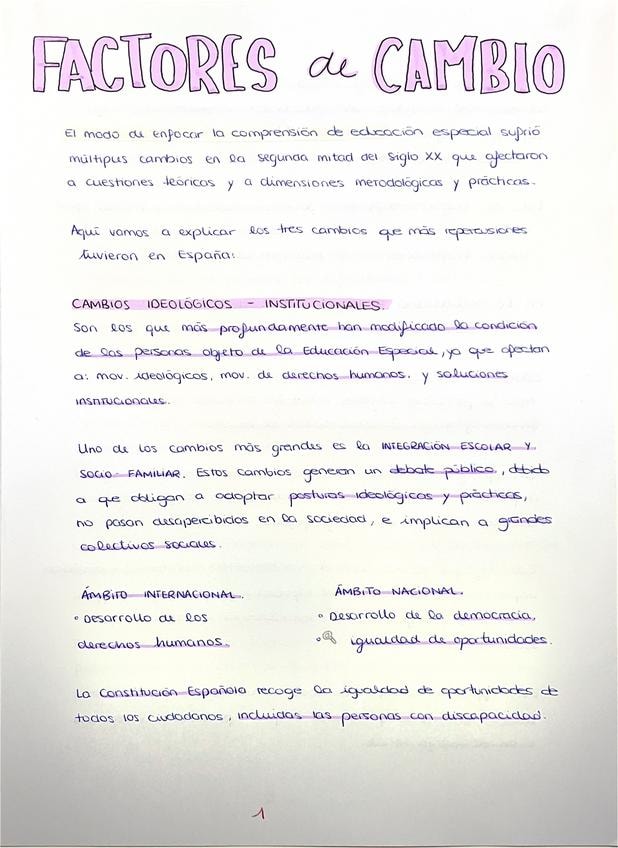 FACTORES de CAMBIO
El modo de enfocar la comprensión de educación especial sufrió
múltiples cambios en la segunda mitad del siglo XX que afectaron
a cuestiones teóricos y a dimensiones metodológicas y prácticas.
Aquí vamos a explicar los tres cambios que más repercusiones
tuvieron en España:
CAMBIOS IDEOLÓGICOS - INSTITUCIONALES.
Son los que más profundamente han modificado la condición
de las personas objeto de la Educación Especial, ya que afectan
a: mov. ideológicos, mov. de derechos humanos. y soluciones
institucionales.
Uno de los cambios más grandes es la INTEGRACIÓN ESCOLAR Y
SOCIO-FAMILIAR. Estos cambios generan un debate público, debido
a que obligan a adoptar posturas ideológicas y prácticas,
no pasan desapercibidos en la sociedad, e implican a grandes
colectivos sociales.
ÁMBITO INTERNACIONAL.
• Desarrollo de los
derechos humanos.
ÁMBITO NACIONAL.
• Desarrollo de la democracia,
• igualdad de oportunidades.
La Constitución Española recoge la igualdad de oportunidades de
todos los ciudadanos, incluidas las personas con discapacidad.
1